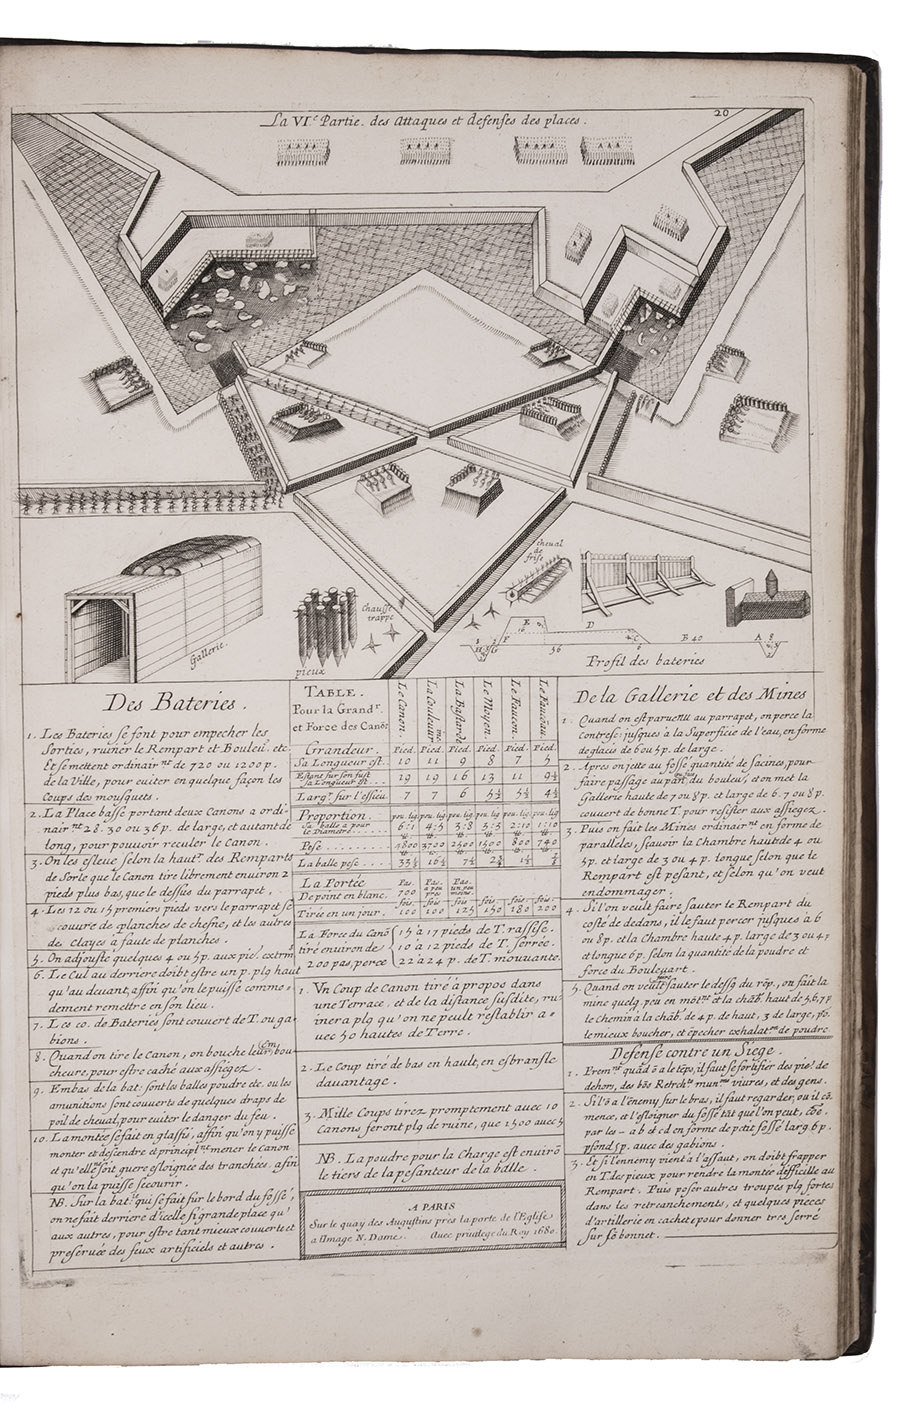 La VI.e Partie. des Attaques et defenses des places.
20
Gallerie.
pieux
Chausse
trappe
cheual
de
frise
E
D
F
C
B 40
A 8
56
6
Profil des bateries
Des Bateries.
1. Les Bateries se font pour empecher les
Sorties, ruiner le Rempart et Bouleu. etc.
Et se mettent ordinair.nt de 720 ou 1200 p.
de la Ville, pour euiter en quelque façon les
Coups des mousquets.
2. La Place basse portant deux Canons a ordi-
nair.nt 28. 30 ou 36 p. de large, et autant de
long, pour pouuoir reculer le Canon.
3. On les esleue selon la haut.r des Remparts
de Sorte que le Canon tire librement enuiron 2
pieds plus bas, que le dessus du parrapet.
4. Les 12 ou 15 premiers pieds vers le parrapet se
couure de planches de chesne, et les autres
de Clayes a faute de planches.
5. On adjouste quelques 4 ou 5 p. aux pic. extrm.
6. Le Cul au derriere doibt estre un p. plg haut
qu'au deuant, affin qu'on le puisse commo-
dement remettre en son lieu.
7. Les co. de Bateries sont couuert de T. ou ga-
bions.
8. Quand on tire le Canon, on bouche leur Em-bou-
cheure, pour estre caché aux assiegez.
9. Embas de la bat. sont les balles poudre etc. ou les
amunitions sont couuerts de quelques draps de
poil de cheual, pour euiter le danger du feu.
10. La montée se fait en glassis, affin qu'on y puisse
monter et descendre et principl.nt mener le Canon
et qu'elle soit guere esloignée des tranchées. afin
qu'on la puisse secourir.
NB. Sur la bat.te qui se fait sur le bord du fossé,
on ne fait derriere d'icelle si grande place qu'
aux autres, pour estre tant mieux couuerte et
preseruée des feux artificiels et autres.
TABLE.
Pour la Grand.r
et Force des Canōs
Le Canon.
La Couleuurine
La Bastarde
Le Moyen.
Le Faucon.
Le Faucōnu
Grandeur. Pied. Pied. Pied. Pied. Pied. Pied.
Sa Longueur est. 10 11 9 8 7 5
Estant sur son fust
sa Longueur est 19 19 16 13 11 9½
Larg.r sur l'essieu 7 7 6 5½ 5½ 4½
Proportion. pou. lig. pou. lig. pou. lig. pou. lig. pou. lig. pou. lig.
La balle a pour
le Diametre 6:1 4:5 3:8 2:10 1:10
Pese 4800 3700 2500 1500 800 740
La balle pese 33⅓ 16½ 7½ 2¾ 1½
La Portée Pas. Pas. Pas.
De point en blanc. 700 a peu pres un peu moins.
fois. fois. fois. fois. fois. fois.
Tirée en un jour. 100 100 125 150 180 200
La Force du Canō 15 a 17 pieds de T. rassise.
tiré enuiron de 10 a 12 pieds de T. serrée.
200 pas, perce 22 a 24 p. de T. mouuante.
1. Vn Coup de Canon tiré à propos dans
une Terrace, et de la distance susdite, ru-
inera plg qu'on ne peult restablir a-
uec 50 hautes de Terre.
2. Le Coup tiré de bas en hault, en esbransle
dauantage.
3. Mille Coups tirez promptement auec 10
Canons feront plg de ruine, que 1500 auec 5
NB. La poudre pour la Charge est enuirō
le tiers de la pesanteur de la balle.
A PARIS
Sur le quay des Augustins près la porte de l'Eglise
a l'Image N. Dame. Auec priuilege du Roy 1680.
De la Gallerie et des Mines
1. Quand on est paruenu au parrapet, on perce la
Contresc: jusques à la Superficie de l'eau, en forme
de glacis de 6 ou 5 p. de large.
2. Apres on jette au fossé quantité de facines, pour
faire passage au part. du bouleu. et on met la
Gallerie haute de 7 ou 8 p. et large de 6. 7 ou 8 p.
couuert de bonne T. pour resister aux assiegez.
3. Puis on fait les Mines ordinair.nt en forme de
paralleles, scauoir la Chambre haute de 4 ou
5 p. et large de 3 ou 4 p. longue selon que le
Rempart est pesant, et selon qu'on veut
endommager.
4. Si l'on veult faire sauter le Rempart du
costé de dedans, il le faut percer jusques à 6
ou 8 p. et la Chambre haute 4 p. large de 3 ou 4 p
et longue 6 p. selon la quantité de la poudre et
force du Bouleuart.
5. Quand on veult faire sauter le dessg du rēp., on fait la
mine quelq. peu en mōt.nt et la chāb. haut de 5, 6, 7 p
le Chemin a la chāb. de 4 p. de haut, 3 de large, po.
le mieux boucher, et ēpecher exhalat.on de poudre.
Defense contre un Siege.
1. Prem.nt quād ō a le tēps, il faut se fortifier des pie. de
dehors, des bōs Retrch.ts viures, et des gens.
2. Si l'ō a l'ēnemy sur le bras, il faut regarder, ou il cō-
mence, et l'esloigner du fossé tāt que l'on peut, cōe.
par les - a b et c d en forme de petit fossé larg. 6 p.
pfond 5 p. auec des gabions.
3. Et si l'ennemy vient à l'assaut, on doibt frapper
en T. des pieux pour rendre la montée difficille au
Rempart. Puis poser autres troupes plg fortes
dans les retranchements, et quelques pieces
d'artillerie en cachete pour donner tres serré
sur se bonnet.